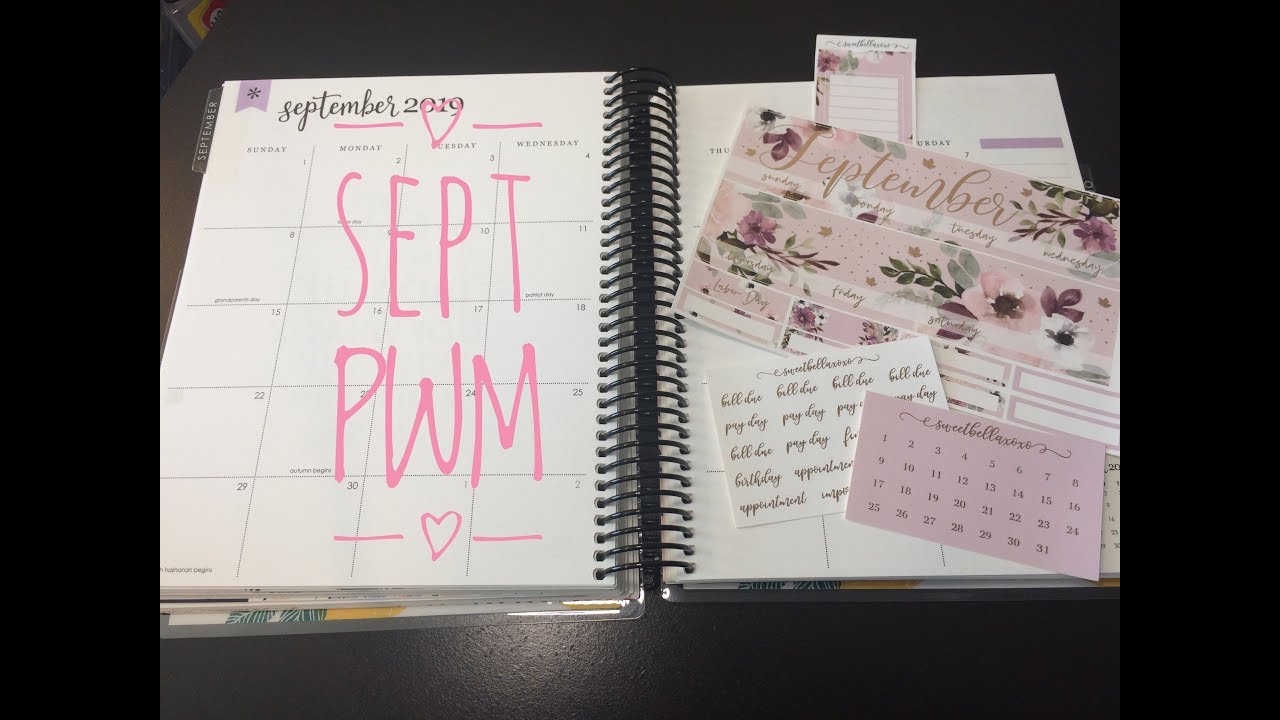 SEPTEMBER
*
september 2019
SUNDAY MONDAY TUESDAY WEDNESDAY
1 2 3 4
labor day
8 9 10 11
grandparents day
patriot day
15 16 17 18
22 24 25
autumn begins
29 30 1 2
hashanah begins
SEPT
PWM
sweetbellaxoxo
7
September
sunday
monday
tuesday
wednesday
thursday
friday
saturday
Labor Day
sweetbellaxoxo
bill due bill due bill due bill due
pay day pay day pay day
bill due pay day
birthday appointment
appointment
sweetbellaxoxo
1 2 3 4 5 6 7 8
9 10 11 12 13 14 15 16
17 18 19 20 21 22 23 24
25 26 27 28 29 30 31